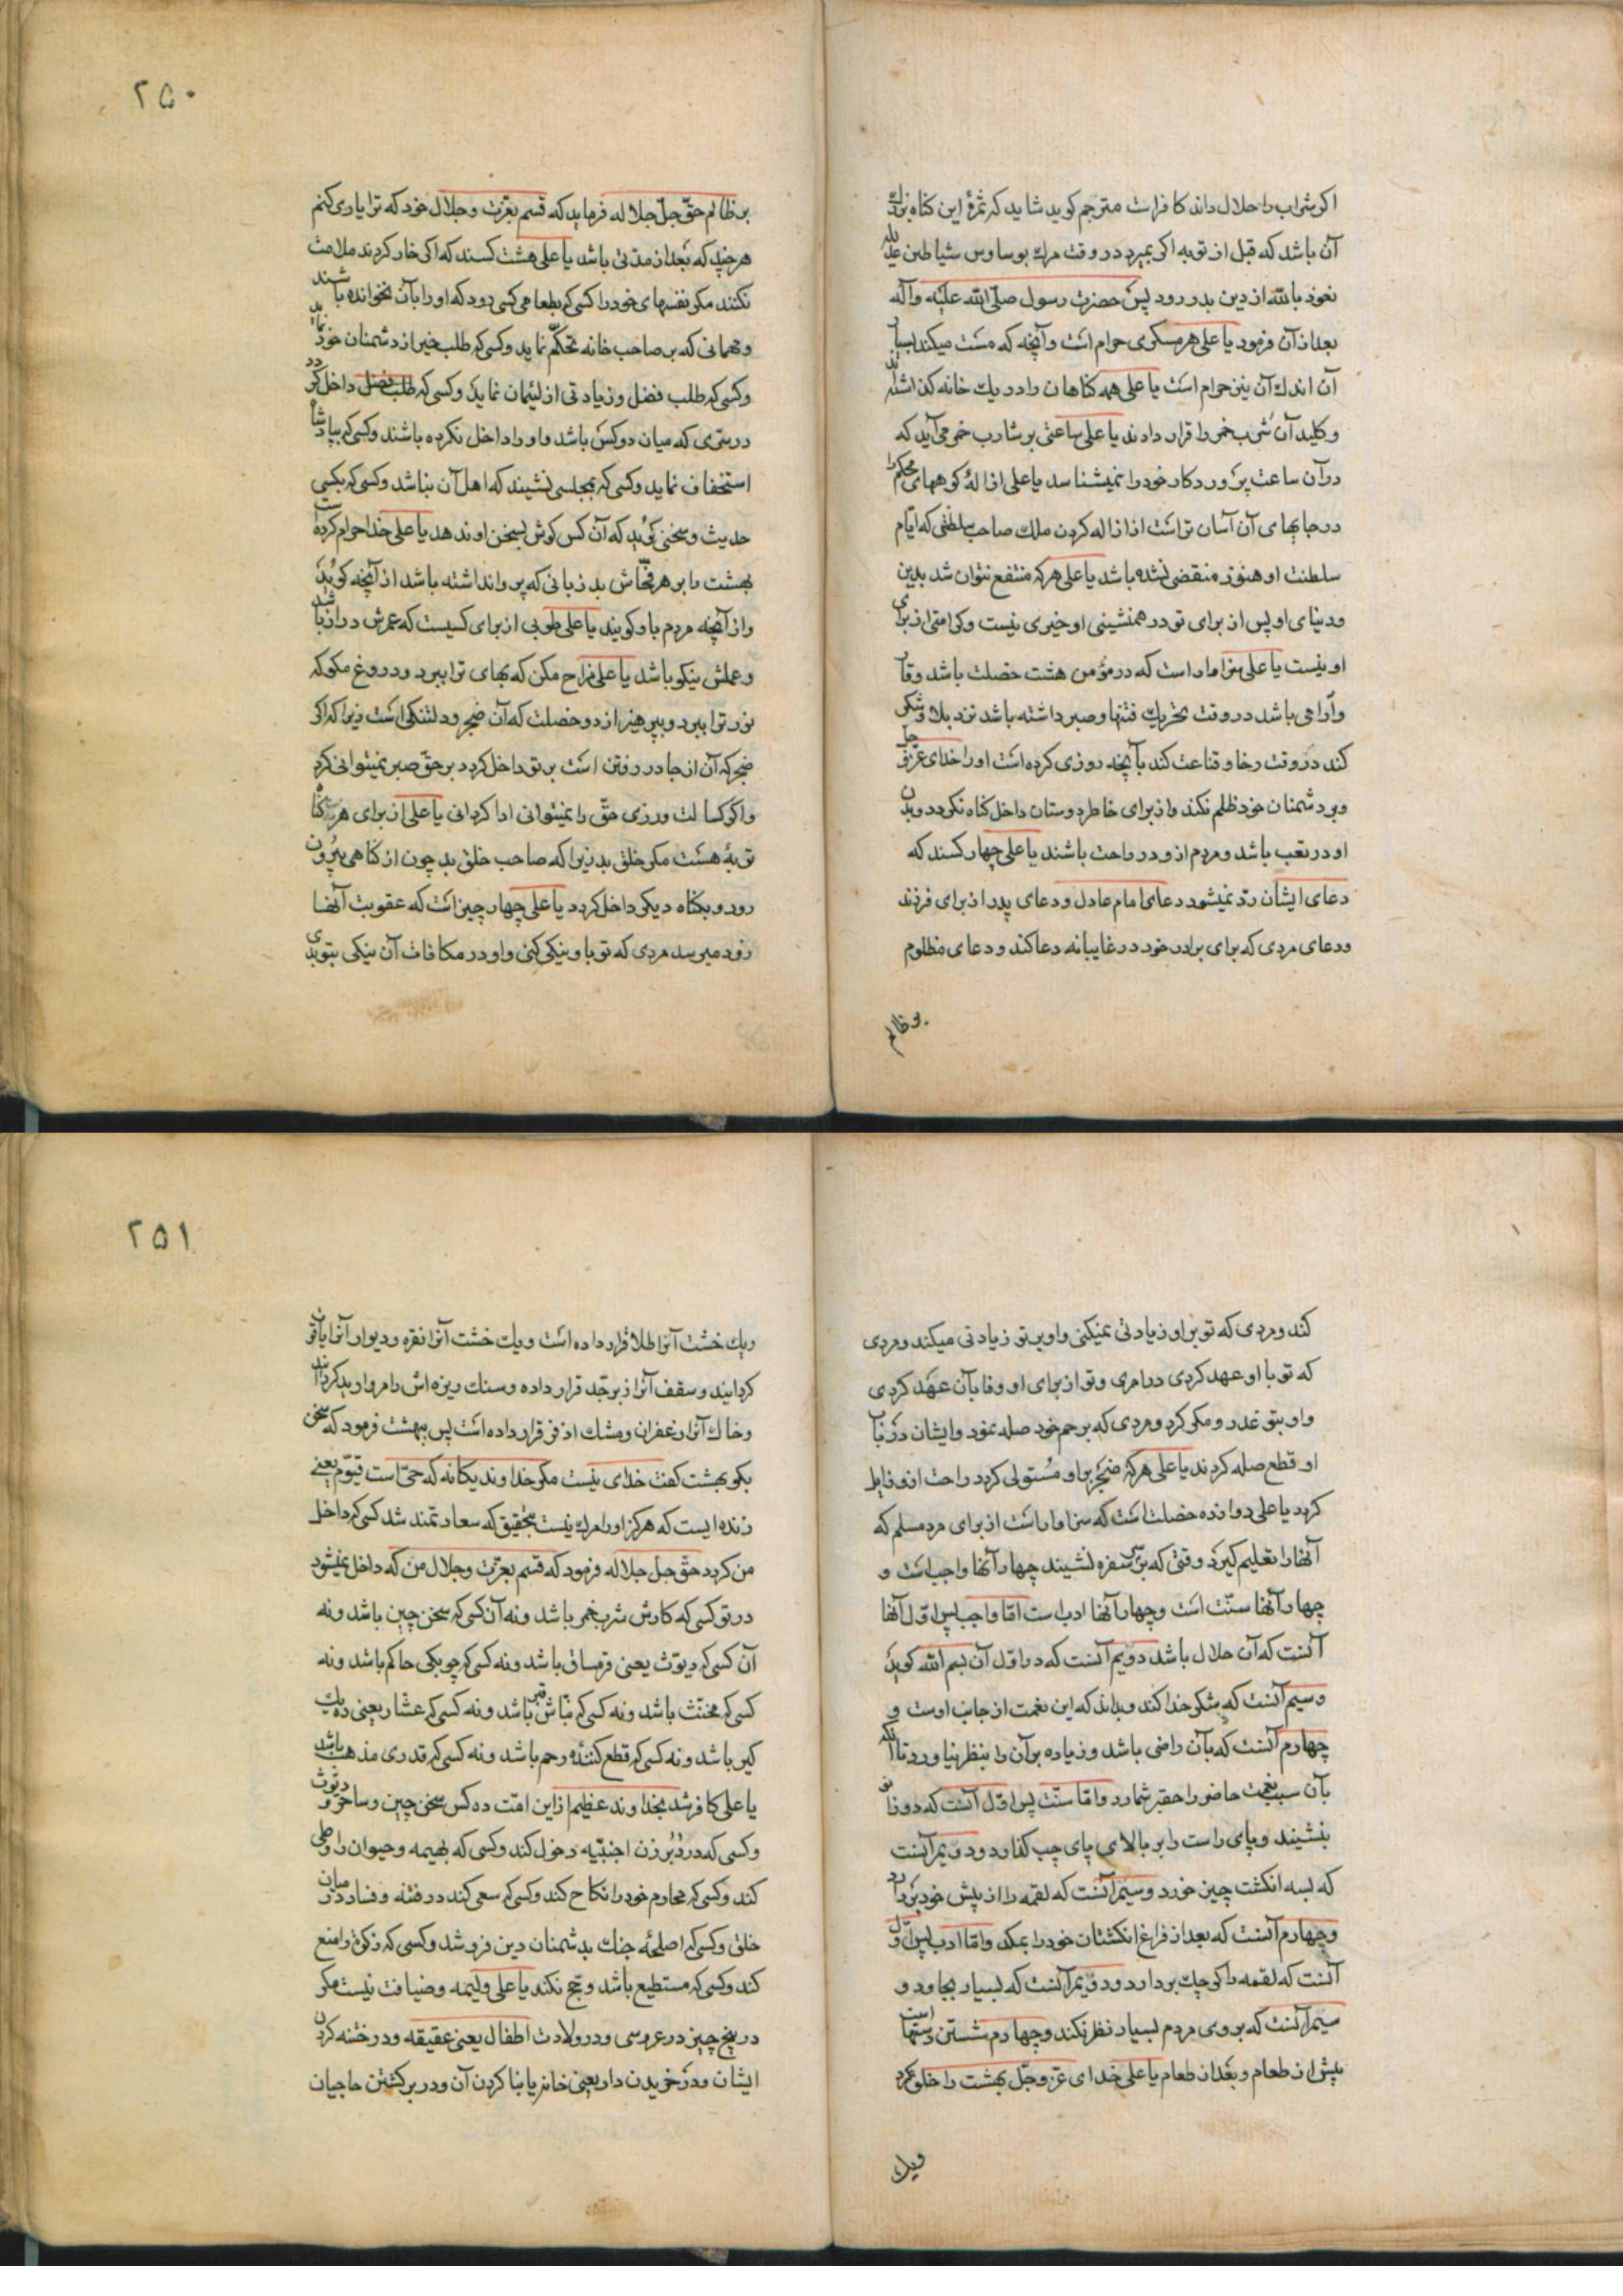 اکر شراب را حلال داند کافر است مترجم کوید شاید که ثمرهٔ این کناه بزرک
آن باشد که قبل از توبه اکر بمیرد در وقت مرک بوساوس شیاطین علیه
نعوذ بالله از دین بدر رود پس حضرت رسول صلی الله علیه وآله
بعد از آن فرمود یا علی هر مسکری حرام است وآنچه که مست میکند بسیار
آن اندک آن نیز حرام است یا علی همه کناهان را در یک خانه کذاشته
وکلید آن شرب خمر را قرار دادند یا علی ساعتی بر شارب خمر می آید که
در آن ساعت پروردکار خود را نمیشناسد یا علی ازالهٔ کوههای محکم را
در جایهای آن آسان تر است از ازاله کردن ملک صاحب سلطنتی که ایّام
سلطنت او هنوز منقضی نشده باشد یا علی هر که منتفع نتوان شد بدین
ودنیای او پس از برای تو در همنشینی او خیری نیست وکرامتی از برای
او نیست یا علی سزاوار است که در مؤمن هشت خصلت باشد وقار
وآرامی باشد در وقت تحریک فتنها وصبر داشته باشد نزد بلا وشکر
کند در وقت رخا وقناعت کند بآنچه روزی کرده است او را خدای عزّ وجل
وبر دشمنان خود ظلم نکند واز برای خاطر دوستان داخل کناه نکردد وبدن
او در تعب باشد ومردم از و در راحت باشند یا علی چهار کسند که
دعای ایشان ردّ نمیشود دعای امام عادل ودعای پدر از برای فرزند
ودعای مردی که برای برادر خود در غایبانه دعا کند ودعای مظلوم
بر ظالم
۲۵۰
بر ظالم حقّ جلّ جلاله فرماید که قسم بعزّت وجلال خود که ترا یاری کنم
هر چند که بعد از مدتی باشد یا علی هشت کسند که اکر خار کردند ملامت
نکنند مکر نفسهای خود را کسی که بطعام کسی رود که او را بآن نخوانده باشند
ومهمانی که بر صاحب خانه تحکّم نماید وکسی که طلب خیر از دشمنان خود نماید
وکسی که طلب فضل وزیادتی از لئیمان نماید وکسی که طلب فضل داخل کردد
در سرّی که میان دو کس باشد واو را داخل نکرده باشند وکسی که بپادشاه
استخفاف نماید وکسی که بمجلسی نشیند که اهل آن نباشد وکسی که بکسی
حدیث وسخنی کوید که آن کس کوش بسخن او ندهد یا علی خدا حرام کرده است
بهشت را بر هر فحّاش بد زبانی که پروا نداشته باشد از آنچه کوید
واز آنچه مردم باو کویند یا علی طوبی از برای کسیست که عمرش دراز باشد
وعملش نیکو باشد یا علی مزاح مکن که بهای ترا ببرد ودروغ مکو که
نور ترا ببرد وبپرهیز از دو خصلت که آن ضجر ودلتنکی است زیرا که اکر
ضجر که آن از جا در رفتن است بر تو داخل کردد بر حقّ صبر نمیتوانی کرد
واکر کسالت ورزی حقّ را نمیتوانی ادا کردانی یا علی از برای هر کناه
توبهٔ هست مکر خلق بد زیرا که صاحب خلق بد چون از کناهی بیرون
رود وبکناه دیکر داخل کردد یا علی چهار چیز است که عقوبت آنها
زود میرسد مردی که تو باو نیکی کنی واو در مکافات آن نیکی بتو بدی
کند ومردی که تو بر او زیادتی نمیکنی واو بر تو زیادتی میکند ومردی
که تو با او عهد کردی در امری وتو از برای او وفا بآن عهد کردی
واو بتو غدر ومکر کرد ومردی که بر رحم خود صله نمود وایشان در باب
او قطع صله کردند یا علی هر که ضجر بر او مستولی کردد راحت از و زایل
کردد یا علی دوازده خصلت است که سزاوار است از برای مرد مسلم که
آنها را تعلیم کیرد وقتی که بر سر سفره نشیند چهار آنها واجب است و
چهار آنها سنّت است وچهار آنها ادب است امّا واجب پس اوّل آنها
آنست که آن حلال باشد دویم آنست که در اوّل آن بسم الله کوید
وسیم آنست که شکر خدا کند وبداند که این نعمت از جانب اوست و
چهارم آنست که بآن راضی باشد وزیاده بر آن را بنظر نیاورد تا آنکه
بآن سبب نعمت حاضر را حقیر شمارد وامّا سنّت پس اوّل آنست که دو زانو
بنشیند وپای راست را بر بالای پای چپ کذارد ودویم آنست
که بسه انکشت چیز خورد وسیم آنست که لقمه را از پیش خود بردارد
وچهارم آنست که بعد از فراغ انکشتان خود را بمکد وامّا ادب پس اوّل
آنست که لقمه را کوچک بردارد ودویم آنست که بسیار بجاود و
سیم آنست که بروی مردم بسیار نظر نکند وچهارم شستن دستها است
پیش از طعام وبعد از طعام یا علی خدای عزّ وجلّ بهشت را خلق کرد
ویک
۲۵۱
ویک خشت آنرا طلا قرار داده است ویک خشت آنرا نقره ودیوار آنرا یاقوت
کردانید وسقف آنرا زبرجد قرار داده وسنک ریزه اش را مروارید کردانید
وخاک آنرا زعفران ومشک اذفر قرار داده است پس ببهشت فرمود که سخن
بکو بهشت کفت خدای نیست مکر خداوند یکانه که حیّ است قیّوم یعنی
زنده ایست که هرکز او را مرک نیست بتحقیق که سعادتمند شد کسی که داخل
من کردد حقّ جل جلاله فرمود که قسم بعزّت وجلال من که داخل نمیشود
در تو کسی که کارش شرب خمر باشد ونه آن کسی که سخن چین باشد ونه
آن کسی که دیّوث یعنی قرمساق باشد ونه کسی که چوبکی حاکم باشد ونه
کسی که مخنّث باشد ونه کسی که نبّاش قبر باشد ونه کسی که عشّار یعنی ده یک
کیر باشد ونه کسی که قطع کنندهٔ رحم باشد ونه کسی که قدری مذهب باشد
یا علی کافر شد بخداوند عظیم از این امّت ده کس سخن چین وساحر و دیّوث
وکسی که در دُبُر زن اجنبّیه دخول کند وکسی که بهیمه وحیوان را وطی
کند وکسی که محارم خود را نکاح کند وکسی که سعی کند در فتنه وفساد در میان
خلق وکسی که اصلحهٔ جنک بدشمنان دین فروشد وکسی که زکوة را منع
کند وکسی که مستطیع باشد وحج نکند یا علی ولیمه وضیافت نیست مکر
در پنج چیز در عروسی ودر ولادت اطفال یعنی عقیقه ودر ختنه کردن
ایشان ودر خریدن دار یعنی خانه یا بنا کردن آن ودر برکشتن حاجیان